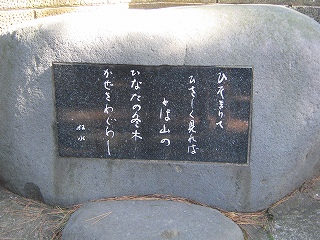 ひそまりて
ひさしく見れば
とほ山の
ひなたの冬木
かぜさわぐらし